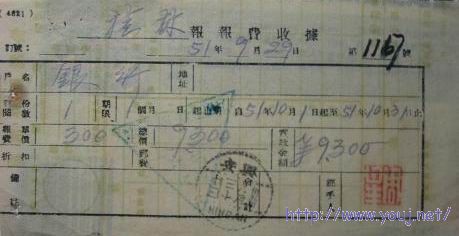 (4821)
桂林 報報費收據
訂號: 51年9月29日 第1167號
戶名 銀行 地址
份數 1 期限 1個月 日 起止期 自51年10月1日起至51年10月31日止
報費 單價 300 總價 9300 實收金額 ¥9,300
折扣 郵費
備註 經手人
http://www.youj.net/